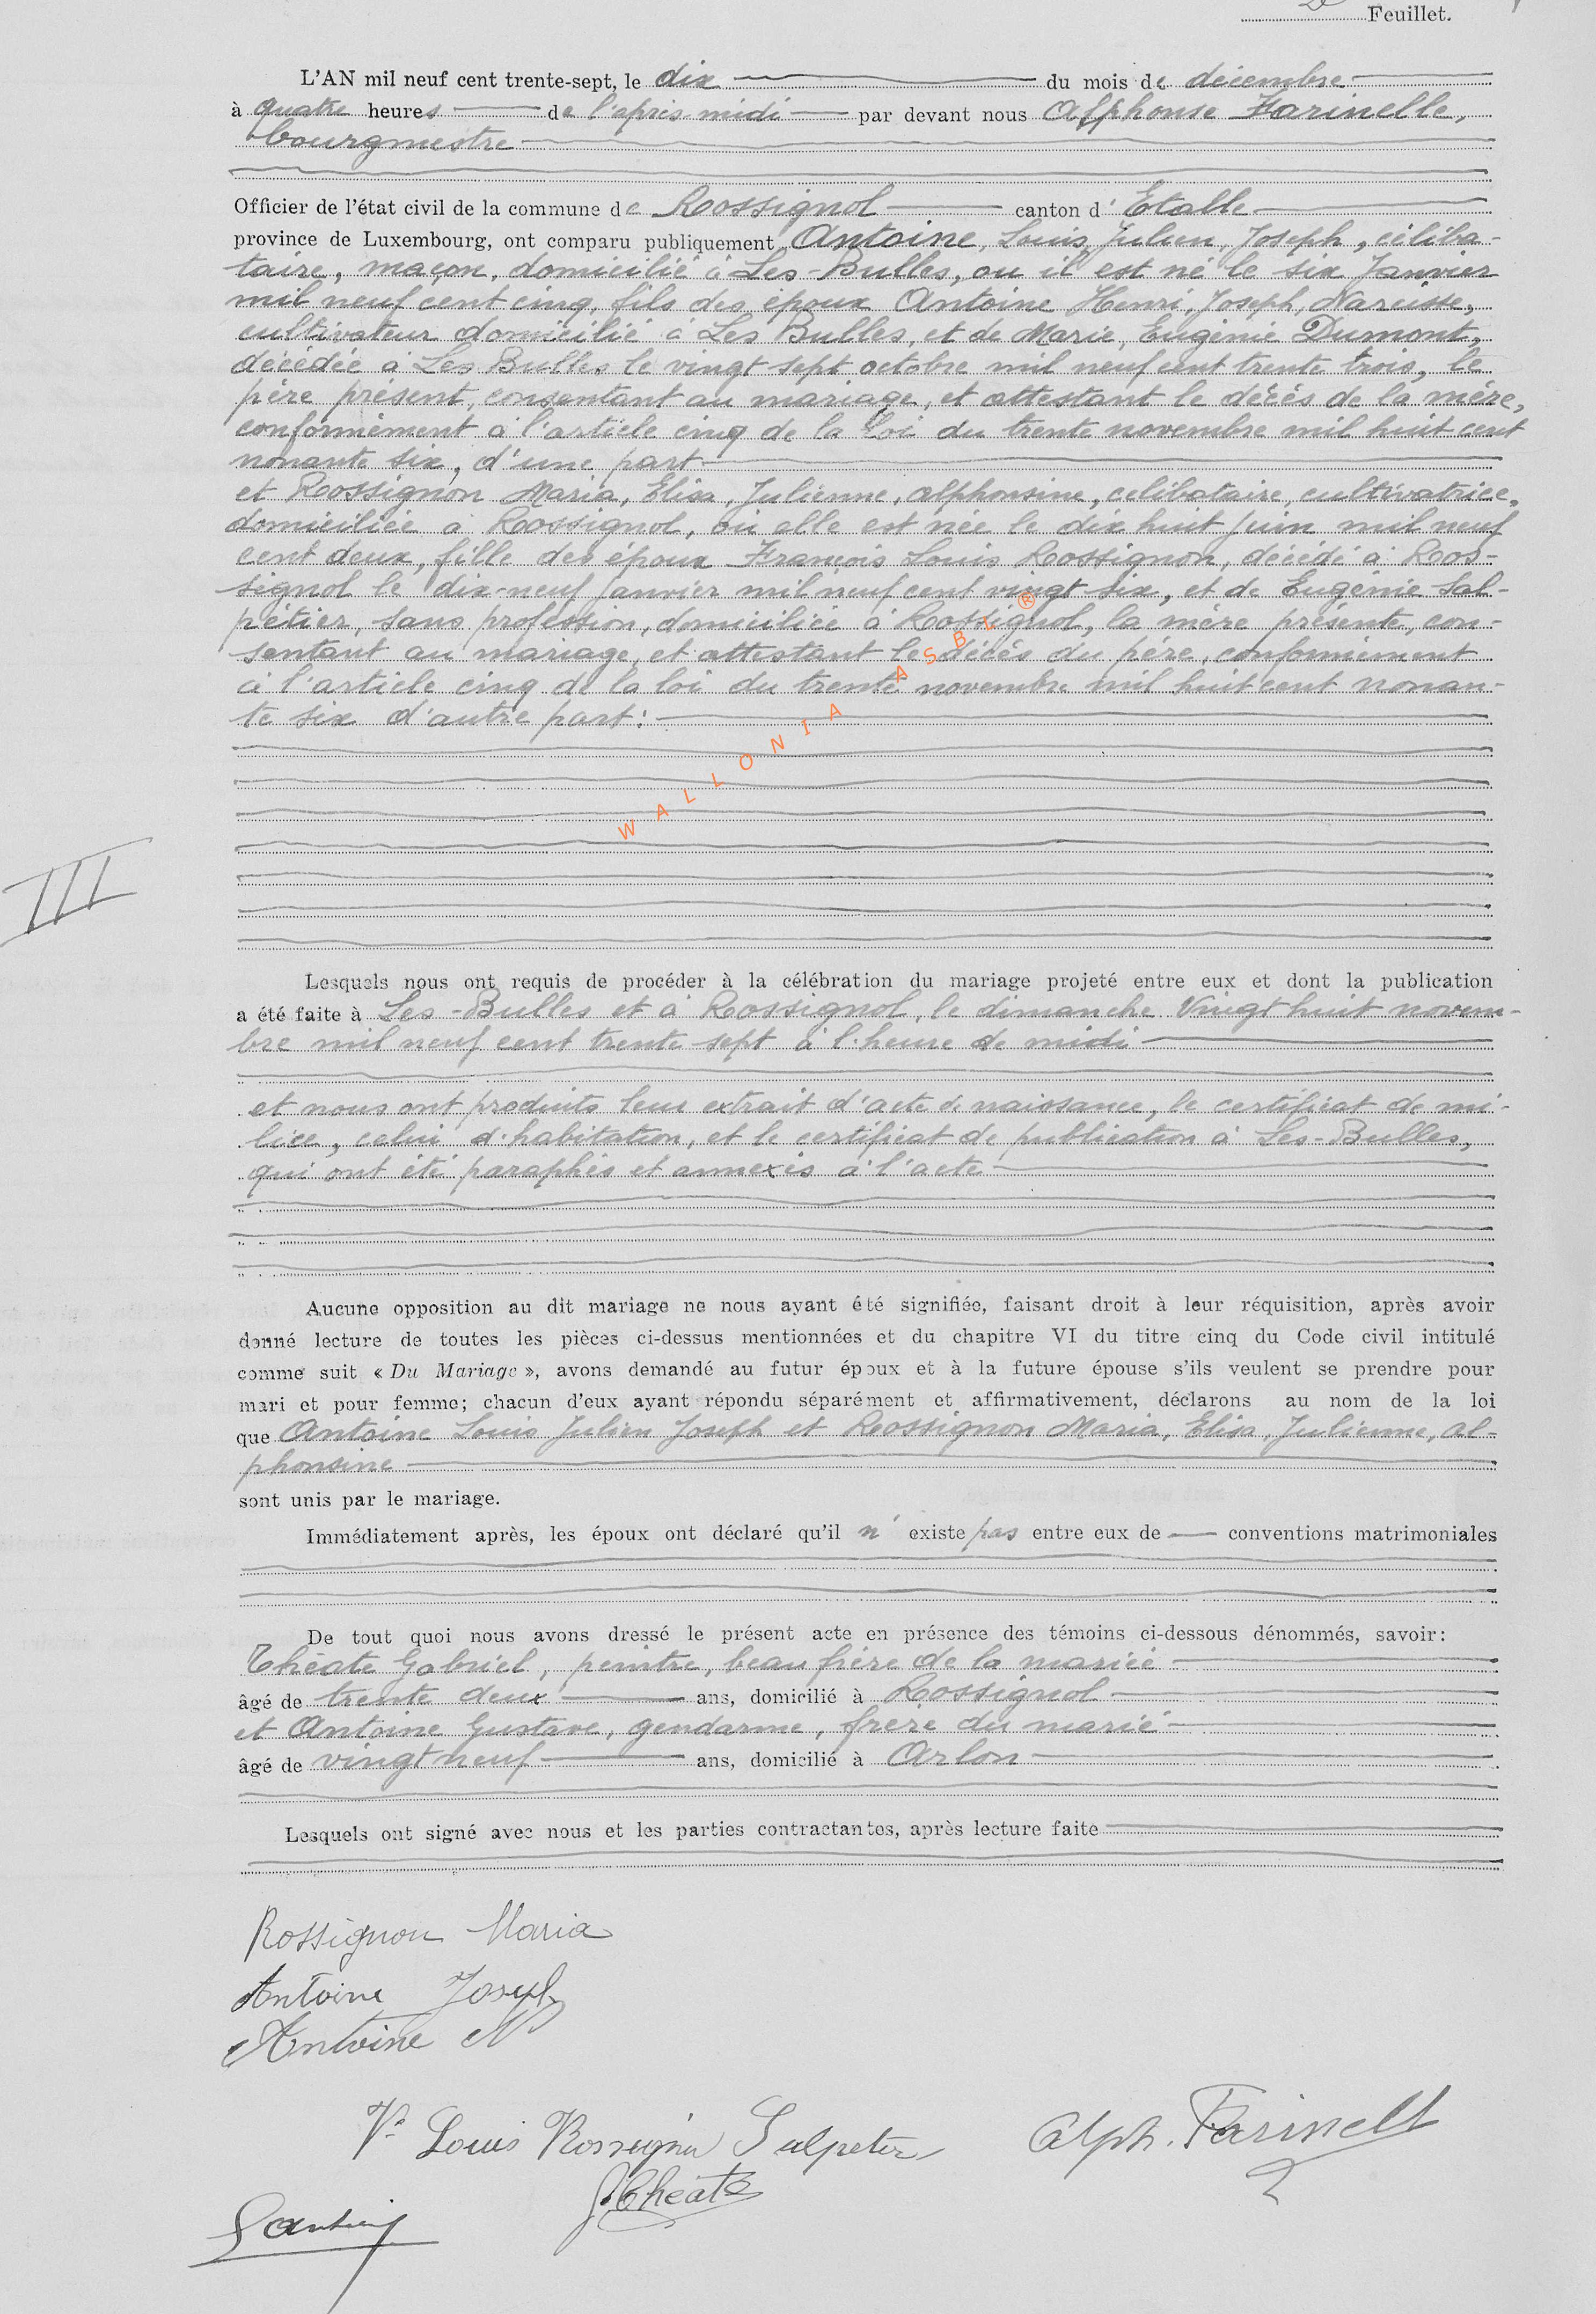 Feuillet.
L'AN mil neuf cent trente-sept, le dix du mois de décembre
à quatre heures de l'après midi par devant nous Alphonse Farinelle,
bourgmestre
Officier de l'état civil de la commune de Rossignol canton d' Etalle
province de Luxembourg, ont comparu publiquement Antoine, Louis, Julien, Joseph, céliba-
taire, maçon, domicilié à Les-Bulles, ou il est né le six Janvier
mil neuf cent cinq, fils des époux Antoine Henri, Joseph, Narcisse,
cultivateur domicilié à Les Bulles, et de Marie, Eugénie Dumont,
décédée à Les Bulles le vingt sept octobre mil neuf cent trente trois, le
père présent, consentant au mariage, et attestant le décès de la mère,
conformément à l'article cinq de la loi du trente novembre mil huit cent
nonante six, d'une part
et Rossignon Maria, Elisa, Julienne, alphonsine, celibataire, cultivatrice,
domiciliée à Rossignol, où elle est née le dix huit juin mil neuf
cent deux, fille des époux François Louis Rossignon, décédé à Ros-
signol le dix-neuf Janvier mil neuf cent vingt six, et de Eugénie Sal-
pétier, sans profession, domiciliée à Rossignol, la mère présente, con-
sentant au mariage, et attestant le décès du père, conformément
à l'article cinq de la loi du trente novembre mil huit cent nonan-
te six d'autre part:
WALLONIA ASBL ®
III
Lesquels nous ont requis de procéder à la célébration du mariage projeté entre eux et dont la publication
a été faite à Les-Bulles et à Rossignol, le dimanche Vingt huit novem-
bre mil neuf cent trente sept à l'heure de midi
et nous ont produits leur extrait d'acte de naissance, le certificat de mi-
lice, celui d'habitation, et le certificat de publication à Les-Bulles,
qui ont été paraphés et annexés à l'acte
Aucune opposition au dit mariage ne nous ayant été signifiée, faisant droit à leur réquisition, après avoir
donné lecture de toutes les pièces ci-dessus mentionnées et du chapitre VI du titre cinq du Code civil intitulé
comme suit « Du Mariage », avons demandé au futur époux et à la future épouse s'ils veulent se prendre pour
mari et pour femme; chacun d'eux ayant répondu séparément et affirmativement, déclarons au nom de la loi
que Antoine Louis Julien Joseph et Rossignon Maria, Elisa, Julienne, al-
phonsine
sont unis par le mariage.
Immédiatement après, les époux ont déclaré qu'il n' existe pas entre eux de conventions matrimoniales
De tout quoi nous avons dressé le présent acte en présence des témoins ci-dessous dénommés, savoir:
Théate Gabriel, peintre, beau frère de la mariée
âgé de trente deux ans, domicilié à Rossignol
et Antoine Gustave, gendarme, frère du marié
âgé de vingt neuf ans, domicilié à Arlon
Lesquels ont signé avec nous et les parties contractantes, après lecture faite
Rossignon Maria
Antoine Joseph
Antoine N
Ve Louis Rossignon Salpeter
Alph. Farinelle
G. Théate